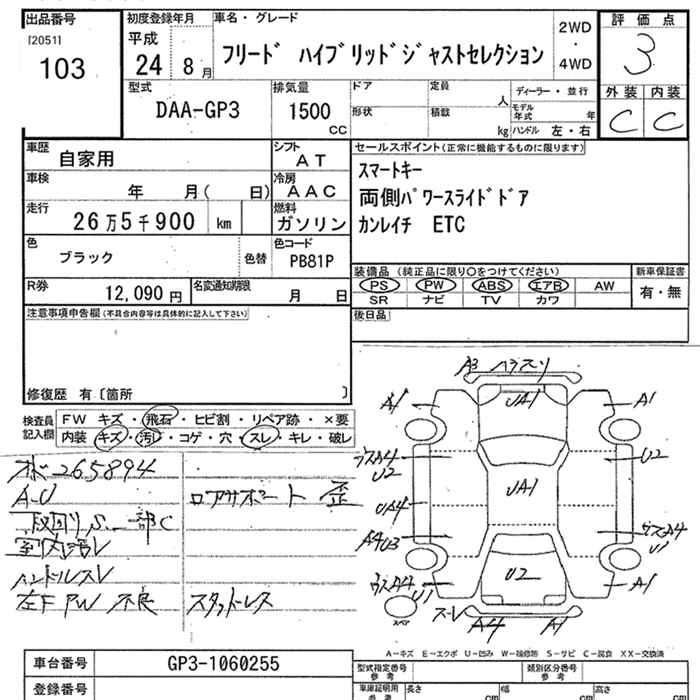 出品番号
[2051]
103
初度登録年月
平成
24 8月
車名・グレード
フリード ハイブリッドジャストセレクション
2WD
・
4WD
評価点
3
外装 内装
C C
型式
DAA-GP3
排気量
1500
CC
ドア
形状
定員
人
積載
kg
ディーラー・並行
モデル年式 年
ハンドル 左・右
車歴
自家用
シフト
AT
車検
年 月( 日)
冷房
AAC
走行
26万5千900 km
燃料
ガソリン
色
ブラック
色替
色コード
PB81P
R券
12,090円
名変通知期限
月 日
セールスポイント(正常に機能するものに限ります)
スマートキー
両側パワースライドドア
カンレイチ ETC
装備品 (純正品に限り○をつけてください)
新車保証書
PS PW ABS エアB AW
有・無
SR ナビ TV カワ
後日品
注意事項申告欄(不具合内容等は具体的に記入して下さい)
修復歴 有〔箇所 〕
検査員記入欄
FW キズ・飛石・ヒビ割・リペア跡・×要
内装 キズ・汚レ・コゲ・穴・スレ・キレ・破レ
265894
A-U
ロアサポート 歪
下廻り S 一部C
室内汚レ
ハンドルスレ
左F PW 不良
スタッドレス
A3
A1
UA1
A1
ウスA4
U2
U2
UA4
UA1
A4U3
ウスA4
U1
ウスA4
U1
U2
A1
スペア
スーレ
A4
A1
A-キズ E-エクボ U-凹み W-補修跡 S-サビ C-腐食 XX-交換済
車台番号
GP3-1060255
登録番号
型式指定番号
参考
類別区分番号
参考
車庫証明用
参考
長さ
cm
幅
cm
高さ
cm